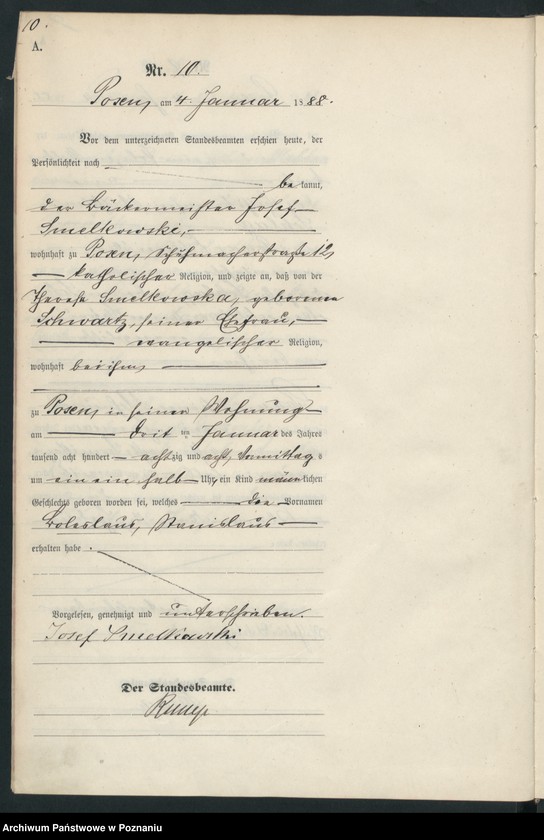 10.
A.
Nr. 10.
Posen, am 4. Januar 1888.
Vor dem unterzeichneten Standesbeamten erschien heute, der
Persönlichkeit nach
bekannt,
der Bäckermeister Josef
Smelkowski,
wohnhaft zu Posen, Schuhmacherstraße 12,
katholischer Religion, und zeigte an, daß von der
Therese Smelkowska, geborenen
Schwartz, seiner Ehefrau,
evangelischer Religion,
wohnhaft bei ihm,
zu Posen, in seiner Wohnung
am drit ten Januar des Jahres
tausend acht hundert achtzig und acht, Vormittags
um ein ein halb Uhr, ein Kind männlichen
Geschlechts geboren worden sei, welches die Vornamen
Boleslaus, Stanislaus
erhalten habe.
Vorgelesen, genehmigt und unterschrieben.
Josef Smelkowski
Der Standesbeamte.
Archiwum Państwowe w Poznaniu